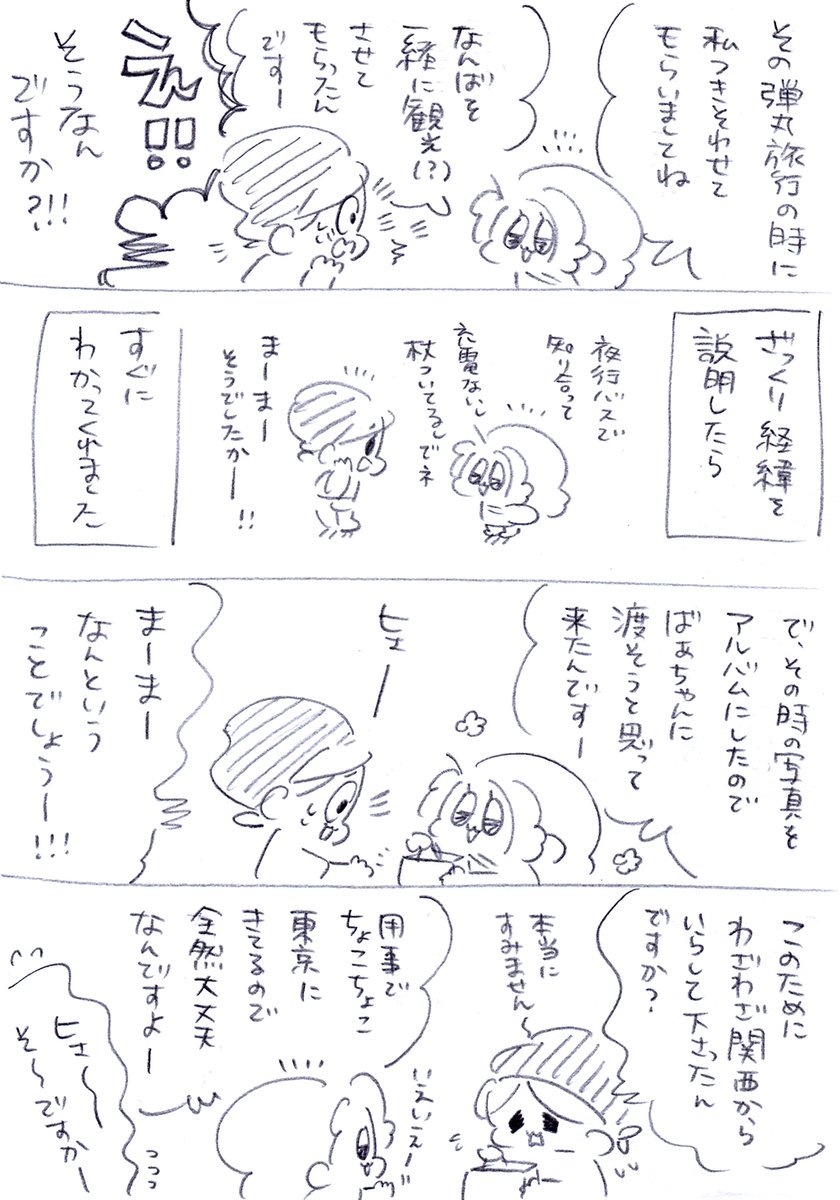 その弾丸旅行の時に
私つきそわせて
もらいましてね
なんばを
一緒に観光(?)
させて
もらったん
ですー
えっ!!
そうなん
ですか?!!!
ざっくり経緯を
説明したら
夜行バスで
知り合って
充電ないし
杖ついてるしでネ
まーまー
そうでしたかー!!
すぐに
わかってくれました
で、その時の写真を
アルバムにしたので
ばあちゃんに
渡そうと思って
来たんですー
ヒェー
まーまー
なんという
ことでしょうー!!!
このために
わざわざ関西から
いらして下さったん
ですか?
本当に
すみません〜
用事で
ちょこちょこ
東京に
きてるので
全然大丈夫
なんですよー
いえいえー
ヒェ〜
そ〜ですかー